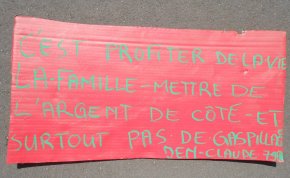 C'EST PROFITER DE LA VIE
LA FAMILLE-METTRE DE
L'ARGENT DE CÔTÉ-ET
SURTOUT PAS DE GASPILLAGE
DEN-CLAUDE